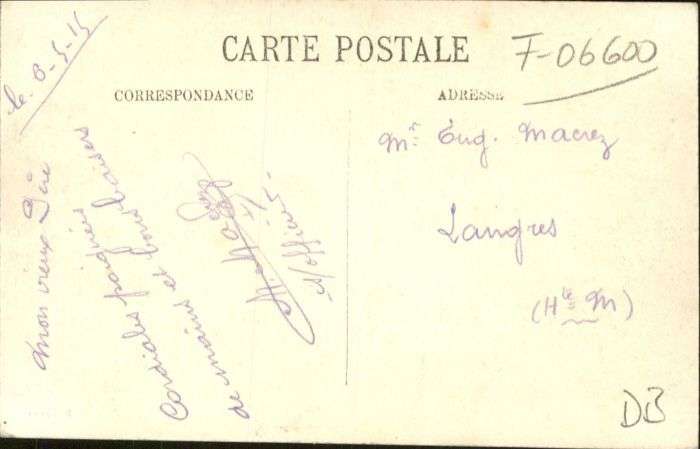 CARTE POSTALE
F-06600
CORRESPONDANCE
ADRESSE
le 8-5-15
mon vieux
Cordiales poignées
de mains et bons baisers
s/officier
Mr Eug. Macrez
Langres
(Hte M)
DB